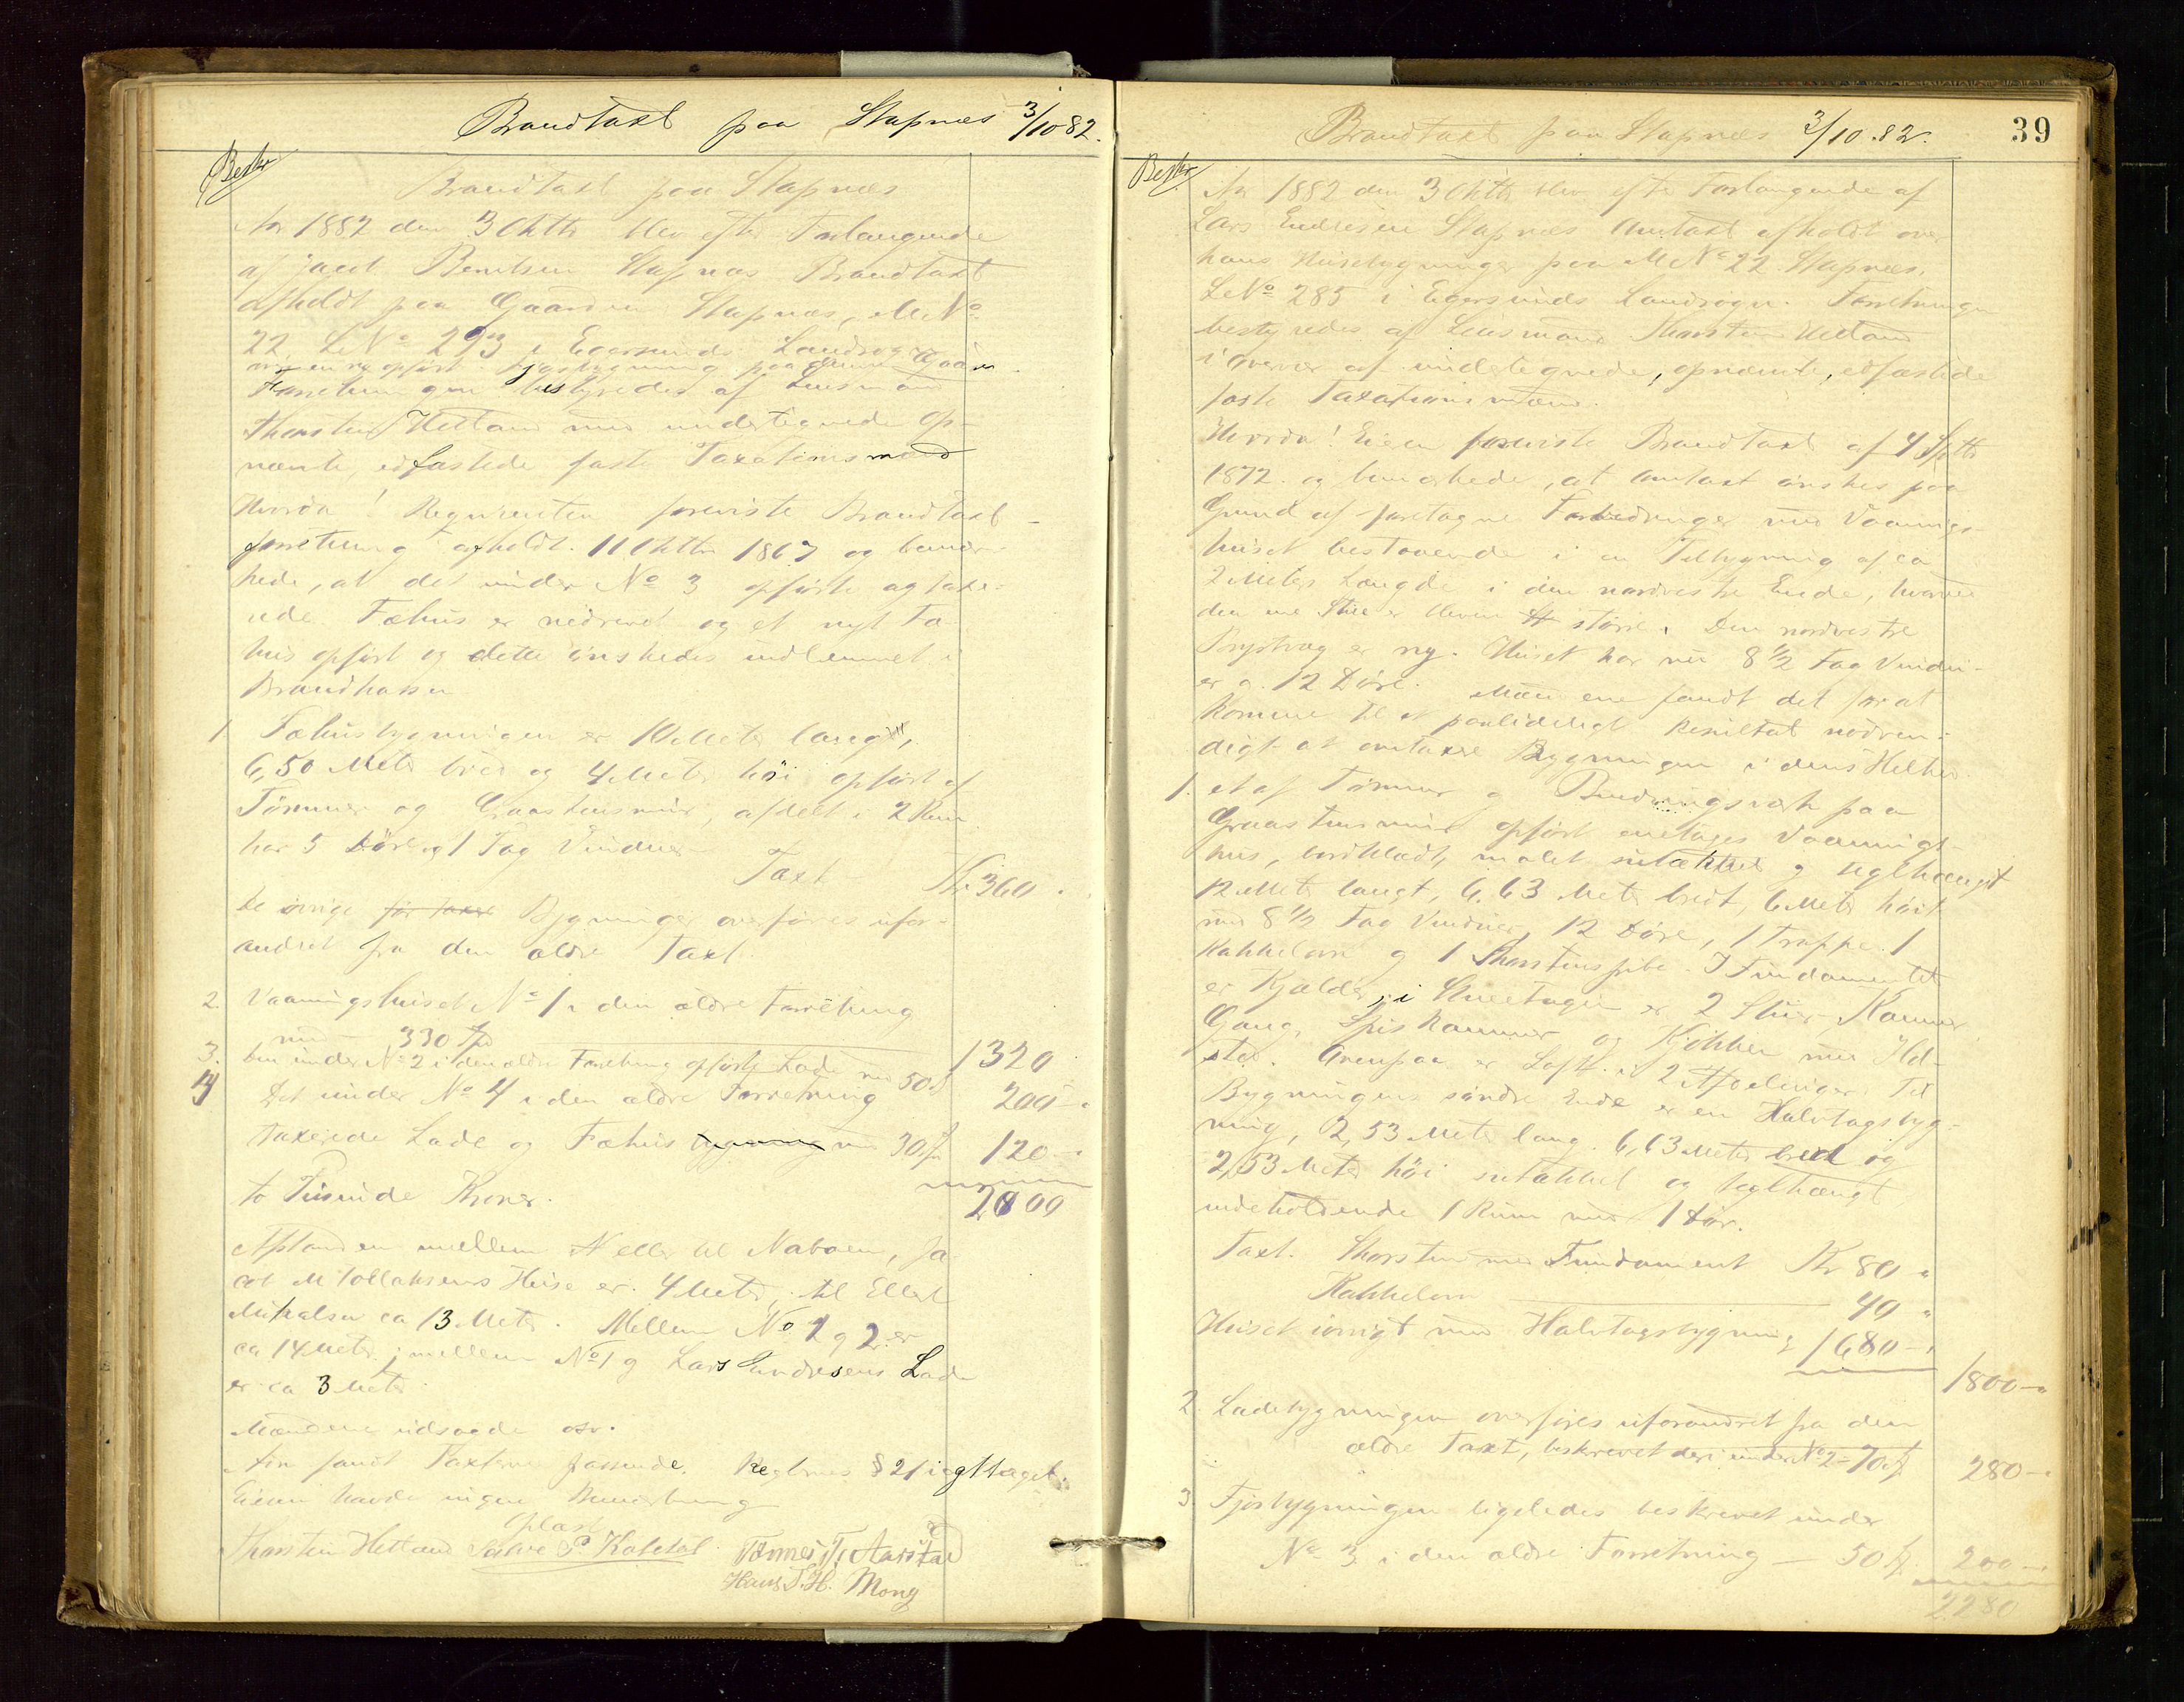 Brandtaxt paa Stapnæs 3/10 82.
Beskr
Brandtaxt paa Stapnæs
Aar 1882 den 3 Oktb blev efter Forlangende
af Jacob Berntsen Stapnæs Brandtaxt
afholdt paa Gaarden Stapnæs, M No
22 L No 293 i Egersunds Landsogn
en ny opført bygning paa Gaarden.
Forretningen bestyredes af Lensmand
Thorsten Hetland med undertegnede op-
nævnte, edfæstede faste Taxationsmænd
Hvorda! Requirenten foreviste Brandtaxt-
forretning afholdt 11 Oktbr 1867 og bemær-
kede, at det under No 3 opførte og taxe-
rede Fæhus er nedrevet og et nyt Fæ-
hus opført og dette ønskedes indlemmet i
Brandkassen
1. Fæhusbygningen er 10 Meter lang,
6,50 Meter bred og 4 Meter høi opført af
Tømmer og Graastensmur, afdelt i 2 Rum
har 5 Døre og 1 Fag Vinduer
Taxt Kr. 360 .
De øvrige før taxer Bygninger overføres ufor-
andret fra den ældre Taxt.
2. Vaaningshuset No 1 i den ældre Forretning
med 330 Spd 1320
3. Den under No 2 i den ældre Forretning opførte Lade med 50 Spd 200 -
4 Det under No 4 i den ældre Forretning
taxerede Lade og Fæhus bygning med 30 Spd 120 -
to Tusinde Kroner. 2000
Afstanden mellem N eller til Naboen, Ja-
cob M Tollaksens Huse er 4 Meter, til Ellert
Mikalsen ca 13 Meter. Mellem No 1 og 2 er
ca 14 Meter, mellem No 1 og Lars Endresens Lade
er ca 3 Meter.
Mændene udsagde osv.
Man fandt Taxterne passende. Reglernes § 21 iagttaget.
Eieren havde ingen Bemærkning
Thorsten Hetland Salve P Kolstøl Tønnes T. Aarstad
Hans S. H. Mong
Brandtaxt paa Stapnæs 3/10 .82. 39
Beskr
Aar 1882 den 3 Oktb blev efter Forlangende af
Lars Endresen Stapnæs Omtaxt afholdt over
hans Husebygninger paa M No 22 Stapnæs,
L No 285 i Egersunds Landsogn. Forretningen
bestyredes af Lensmand Thorsten Hetland
i Overvær af undertegnede, opnævnte, edfæstede
faste Taxationsmænd.
Hvorda! Eieren foreviste Brandtaxt af 4 Sptb
1872 og bemærkede, at Omtaxt ønskes paa
Grund af foretagne Forbedringer med Vaanings-
huset bestaaende i en Tilbygning af ca
2 Meters Længde i den nordvestre Ende, hvorved
den ene Stue er bleven større. Den nordvestre
Brystvæg er ny. Huset har nu 8 1/2 Fag Vindu-
er og 12 Døre. Mændene fandt det for at
komme til et paalideligt Resultat nødven-
digt at omtaxere Bygningen i dens Helhed.
1. et af Tømmer og Bindingsværk paa
Graastensmur opført enetages Vaanings-
hus, bordklædt, malet sutækket og teglhængt
12 Meter langt, 6,63 Meter bredt, 6 Meter høit
med 8 1/2 Fag Vinduer, 12 Døre, 1 Trappe 1
Kakkelovn og 1 Skorstenspibe. I Fundamentet
er Kjælder, i Stueetagen er 2 Stuer, Kammer,
Gang, Spiskammer og Kjøkken med Ild-
sted. Ovenpaa er Loft i 2 Afdelinger. Til
Bygningens søndre Ende er en Halvtagsbyg-
ning, 2,53 Meter lang, 6,63 Meter bred og
2,53 Meter høi sutækket og teglhængt
indeholdende 1 Rum med 1 Dør.
Taxt. Skorsten med Fundament Kr 80 "
Kakkelovn 40 "
Huset iøvrigt med Halvtagsbygning 1680 -
1800 -
2. Ladebygningen overføres uforandret fra den
ældre Taxt, beskrevet deri under No 2 - 70 Spd 280 -
3. Fjøsbygningen ligeledes beskrevet under
No 3 i den ældre Forretning - 50 Spd. 200 -
2280